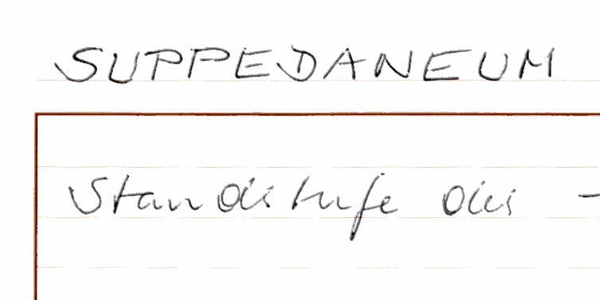 SUPPEDANEUM
Standstufe des -